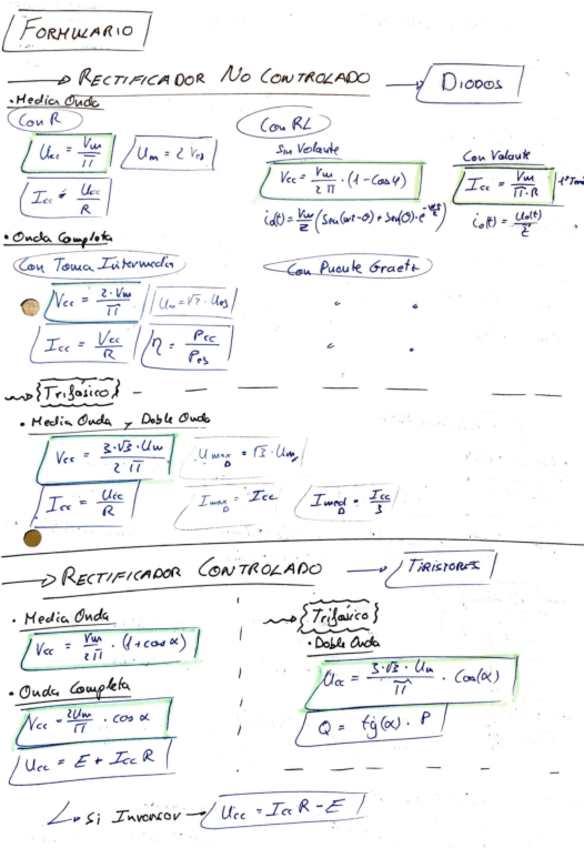 FORMULARIO
→ RECTIFICADOR NO CONTROLADO → DIODOS
• Media Onda
Con R
Ucc = Vm / π
Um = 2 Vef
Icc = Ucc / R
Con RL
Sin Volante
Vcc = Vm / 2π · (1 - Cos φ)
Con Volante
Icc = Vm / π·R
• Onda Completa
Con Toma Intermedia
Vcc = 2·Vm / π
Um = √2 · Uef
Icc = Vcc / R
η = Pcc / Pef
Con Puente Graetz
" "
" "
{Trifásico}
• Media Onda y Doble Onda
Vcc = 3·√3·Um / 2π
Umax D = √3 · Um
Icc = Ucc / R
Imax D = Icc
Imed D = Icc / 3
→ RECTIFICADOR CONTROLADO → TIRISTORES
• Media Onda
Vcc = Vm / 2π · (1 + cos α)
• Onda Completa
Vcc = 2Um / π · cos α
Ucc = E + Icc R
{Trifásico}
• Doble Onda
Ucc = 3·√3·Um / π · Cos(α)
Q = tg(α) · P
↳ Si Inversor → Ucc = Icc R - E